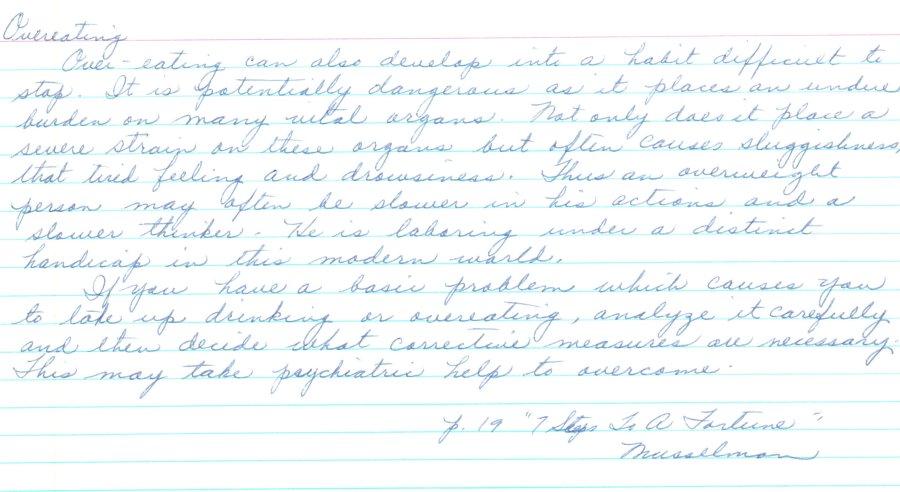 Overeating
Over-eating can also develop into a habit difficult to
stop. It is potentially dangerous as it places an undue
burden on many vital organs. Not only does it place a
severe strain on these organs but often causes sluggishness,
that tired feeling and drowsiness. Thus an overweight
person may often be slower in his actions and a
slower thinker. He is laboring under a distinct
handicap in this modern world.
If you have a basic problem which causes you
to take up drinking or overeating, analyze it carefully
and then decide what corrective measures are necessary.
This may take psychiatric help to overcome.
p. 19 "7 Steps To A Fortune"
Musselman